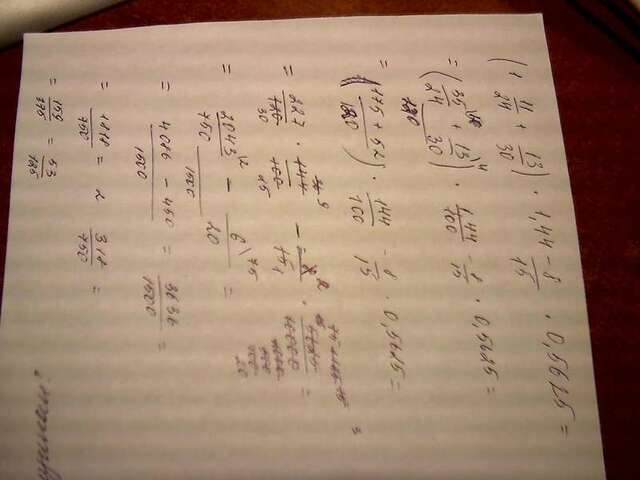 (1 11/24 + 13/30) · 1,44 - 8/15 · 0,5625 =
= (35/24 + 13/30) · 144/100 - 8/15 · 0,5625 =
= (175 + 52 / 120) · 144/100 - 8/15 · 0,5625 =
= 227/120 · 144/100 - 8/15 · =
= 2043/750 - 6/20 =
= 4086 - 450 / 1500 = 3636/1500 =
= 1818/750 = 2 318/750 =
= 159/375 = 53/125